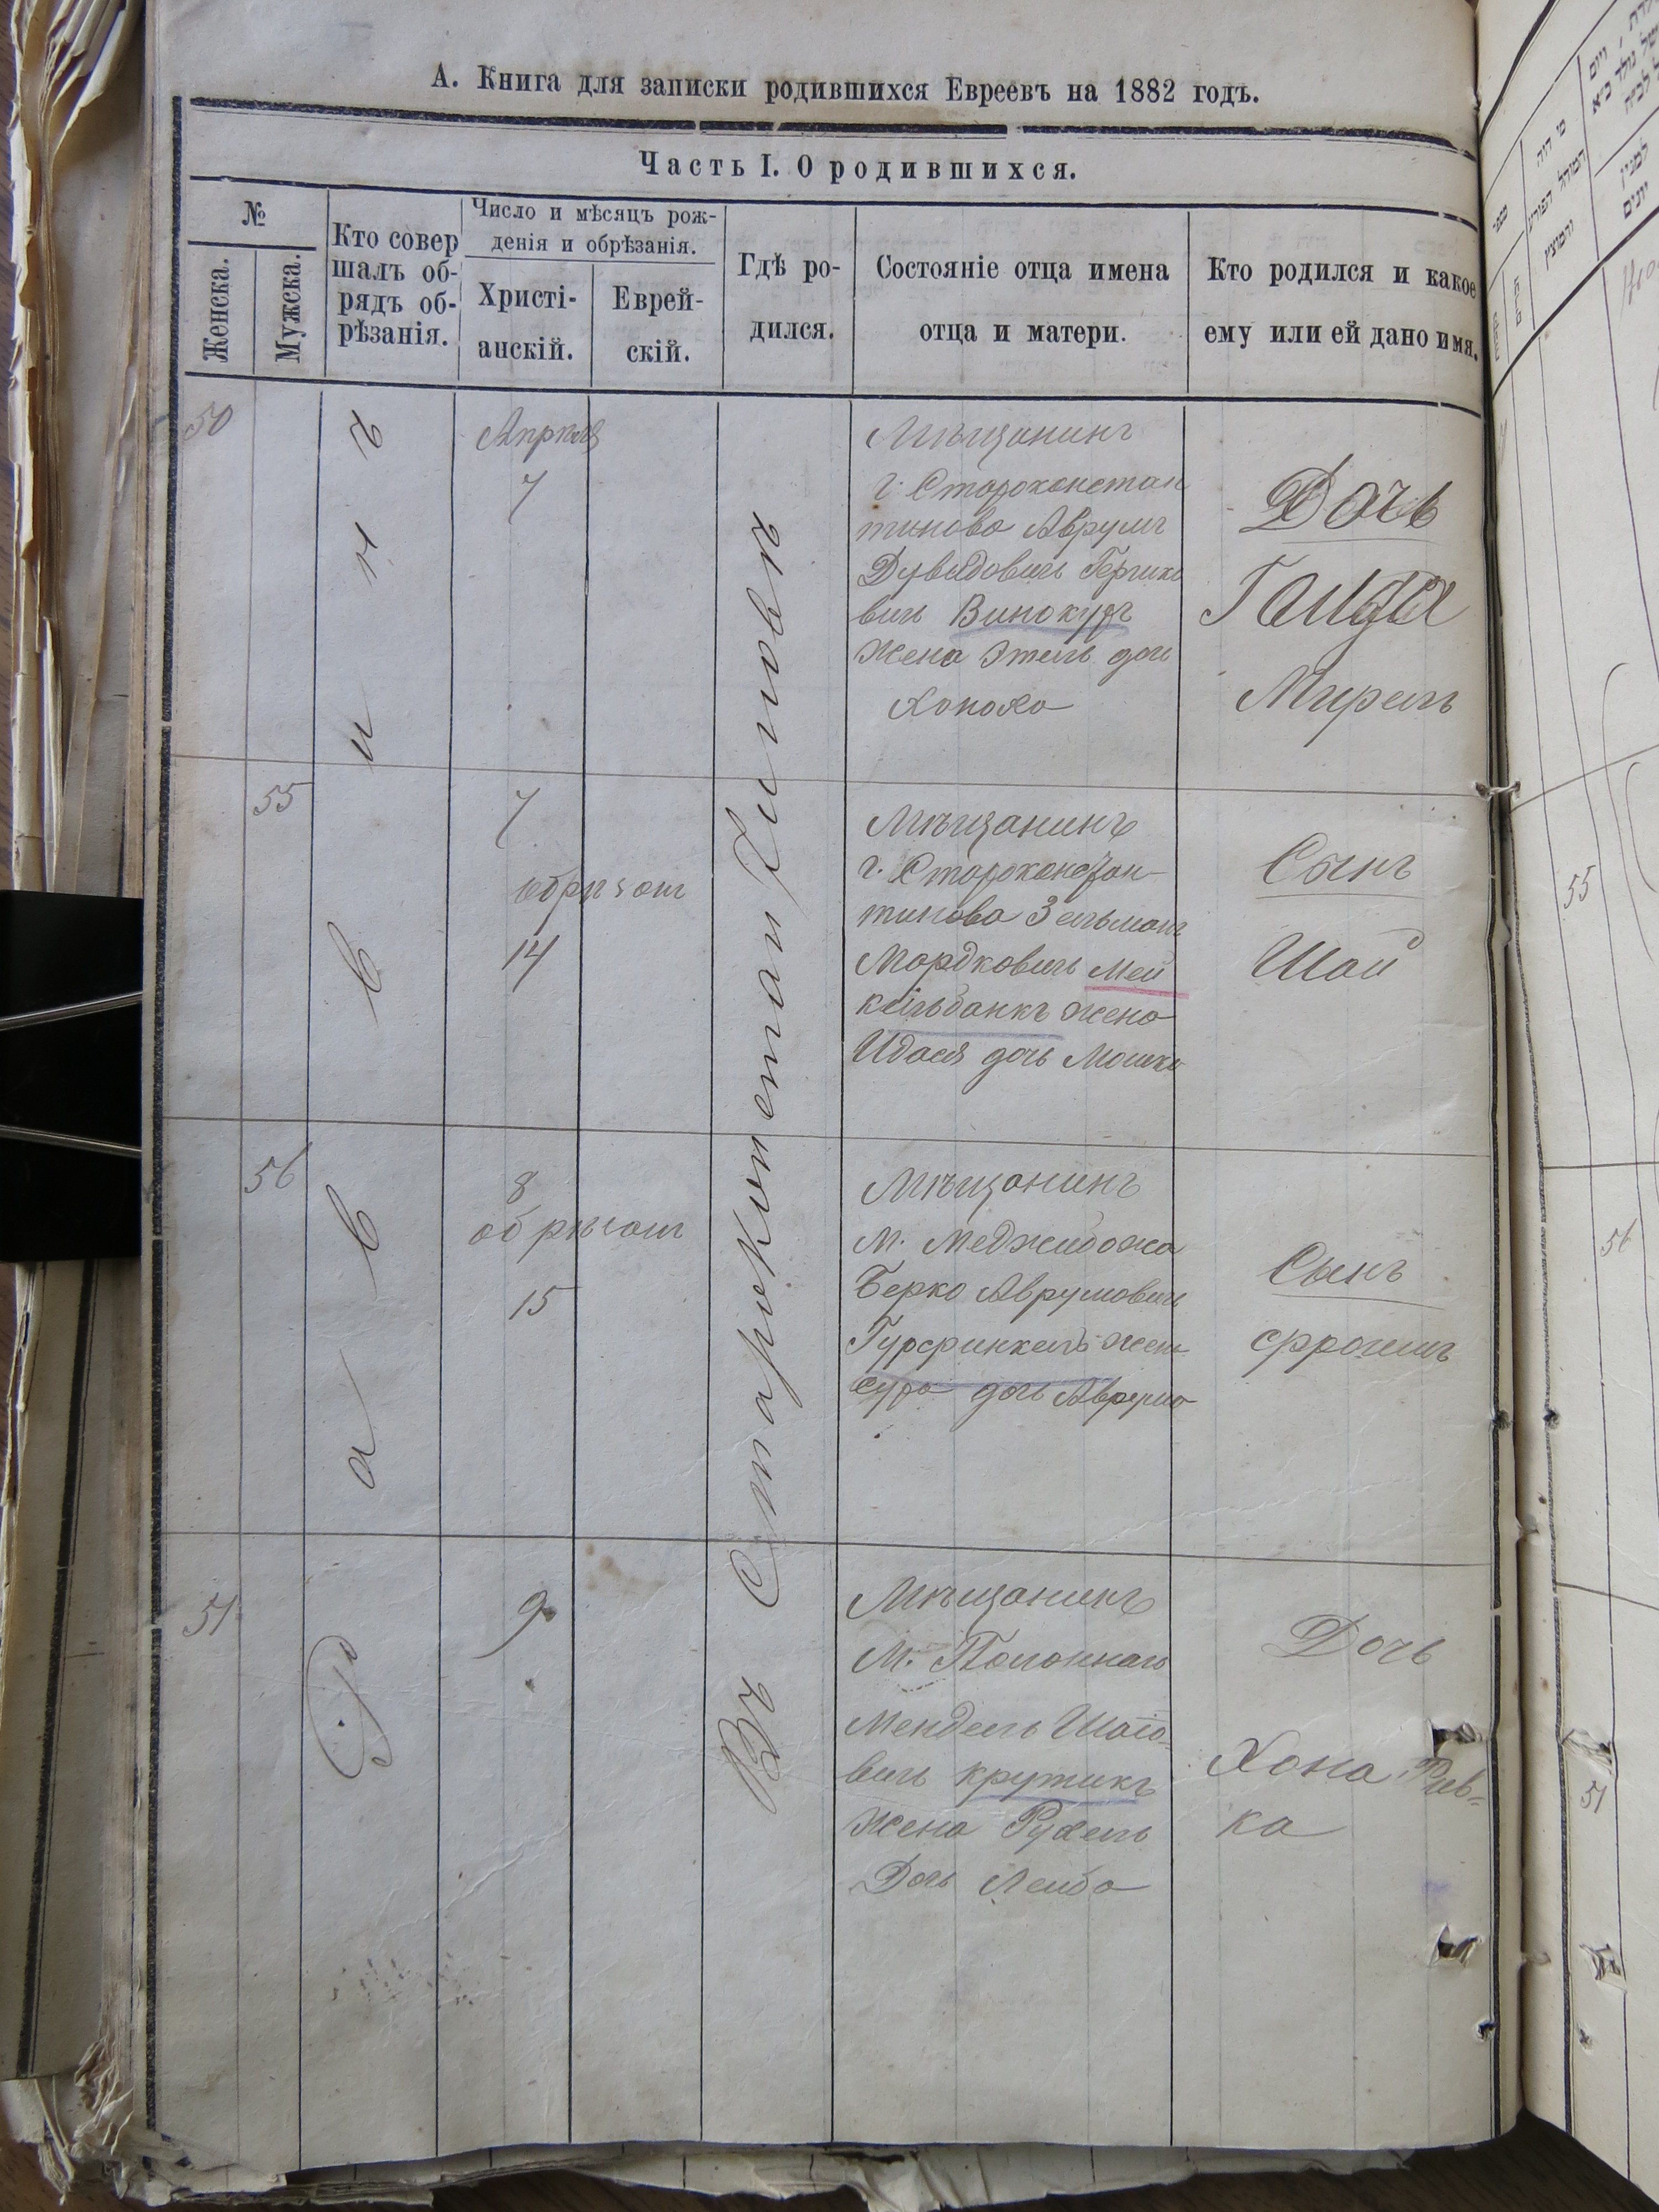 А. Книга для записки родившихся Евреевъ на 1882 годъ.
Часть I. О родившихся.
№
Женска.
Мужска.
Кто совер
шалъ об-
рядъ об-
рѣзанія.
Число и мѣсяцъ рож-
денія и обрѣзанія.
Христі-
анскій.
Еврей-
скій.
Гдѣ ро-
дился.
Состояніе отца имена
отца и матери.
Кто родился и какое
ему или ей дано имя.
Раввинъ
Въ Староконстантиновѣ
50
Апрѣля
7
Мѣщанинъ
г. Староконстан
тинова Аврумъ
Дувидовичъ Гершко
вичъ Винокуръ
жена Этель дочь
Хоно
Дочь
Гитля
Мирель
55
7
обрѣзан
14
Мѣщанинъ
г. Староконстан-
тинова Зельманъ
Мордковичъ Мей
кельбанкъ жена
Идася дочь Мошка
Сынъ
Шая
56
8
обрѣзан
15
Мѣщанинъ
м. Меджибожа
Берко Аврумовичъ
Гурфинкель жена
Сура дочь Аврума
Сынъ
Фроимъ
51
9
Мѣщанинъ
м. Полоннаго
Мендель Шаіо-
вичъ Крутикъ
жена Рухель
Дочь Лейба
Дочь
Хона Рив-
ка
55
56
51